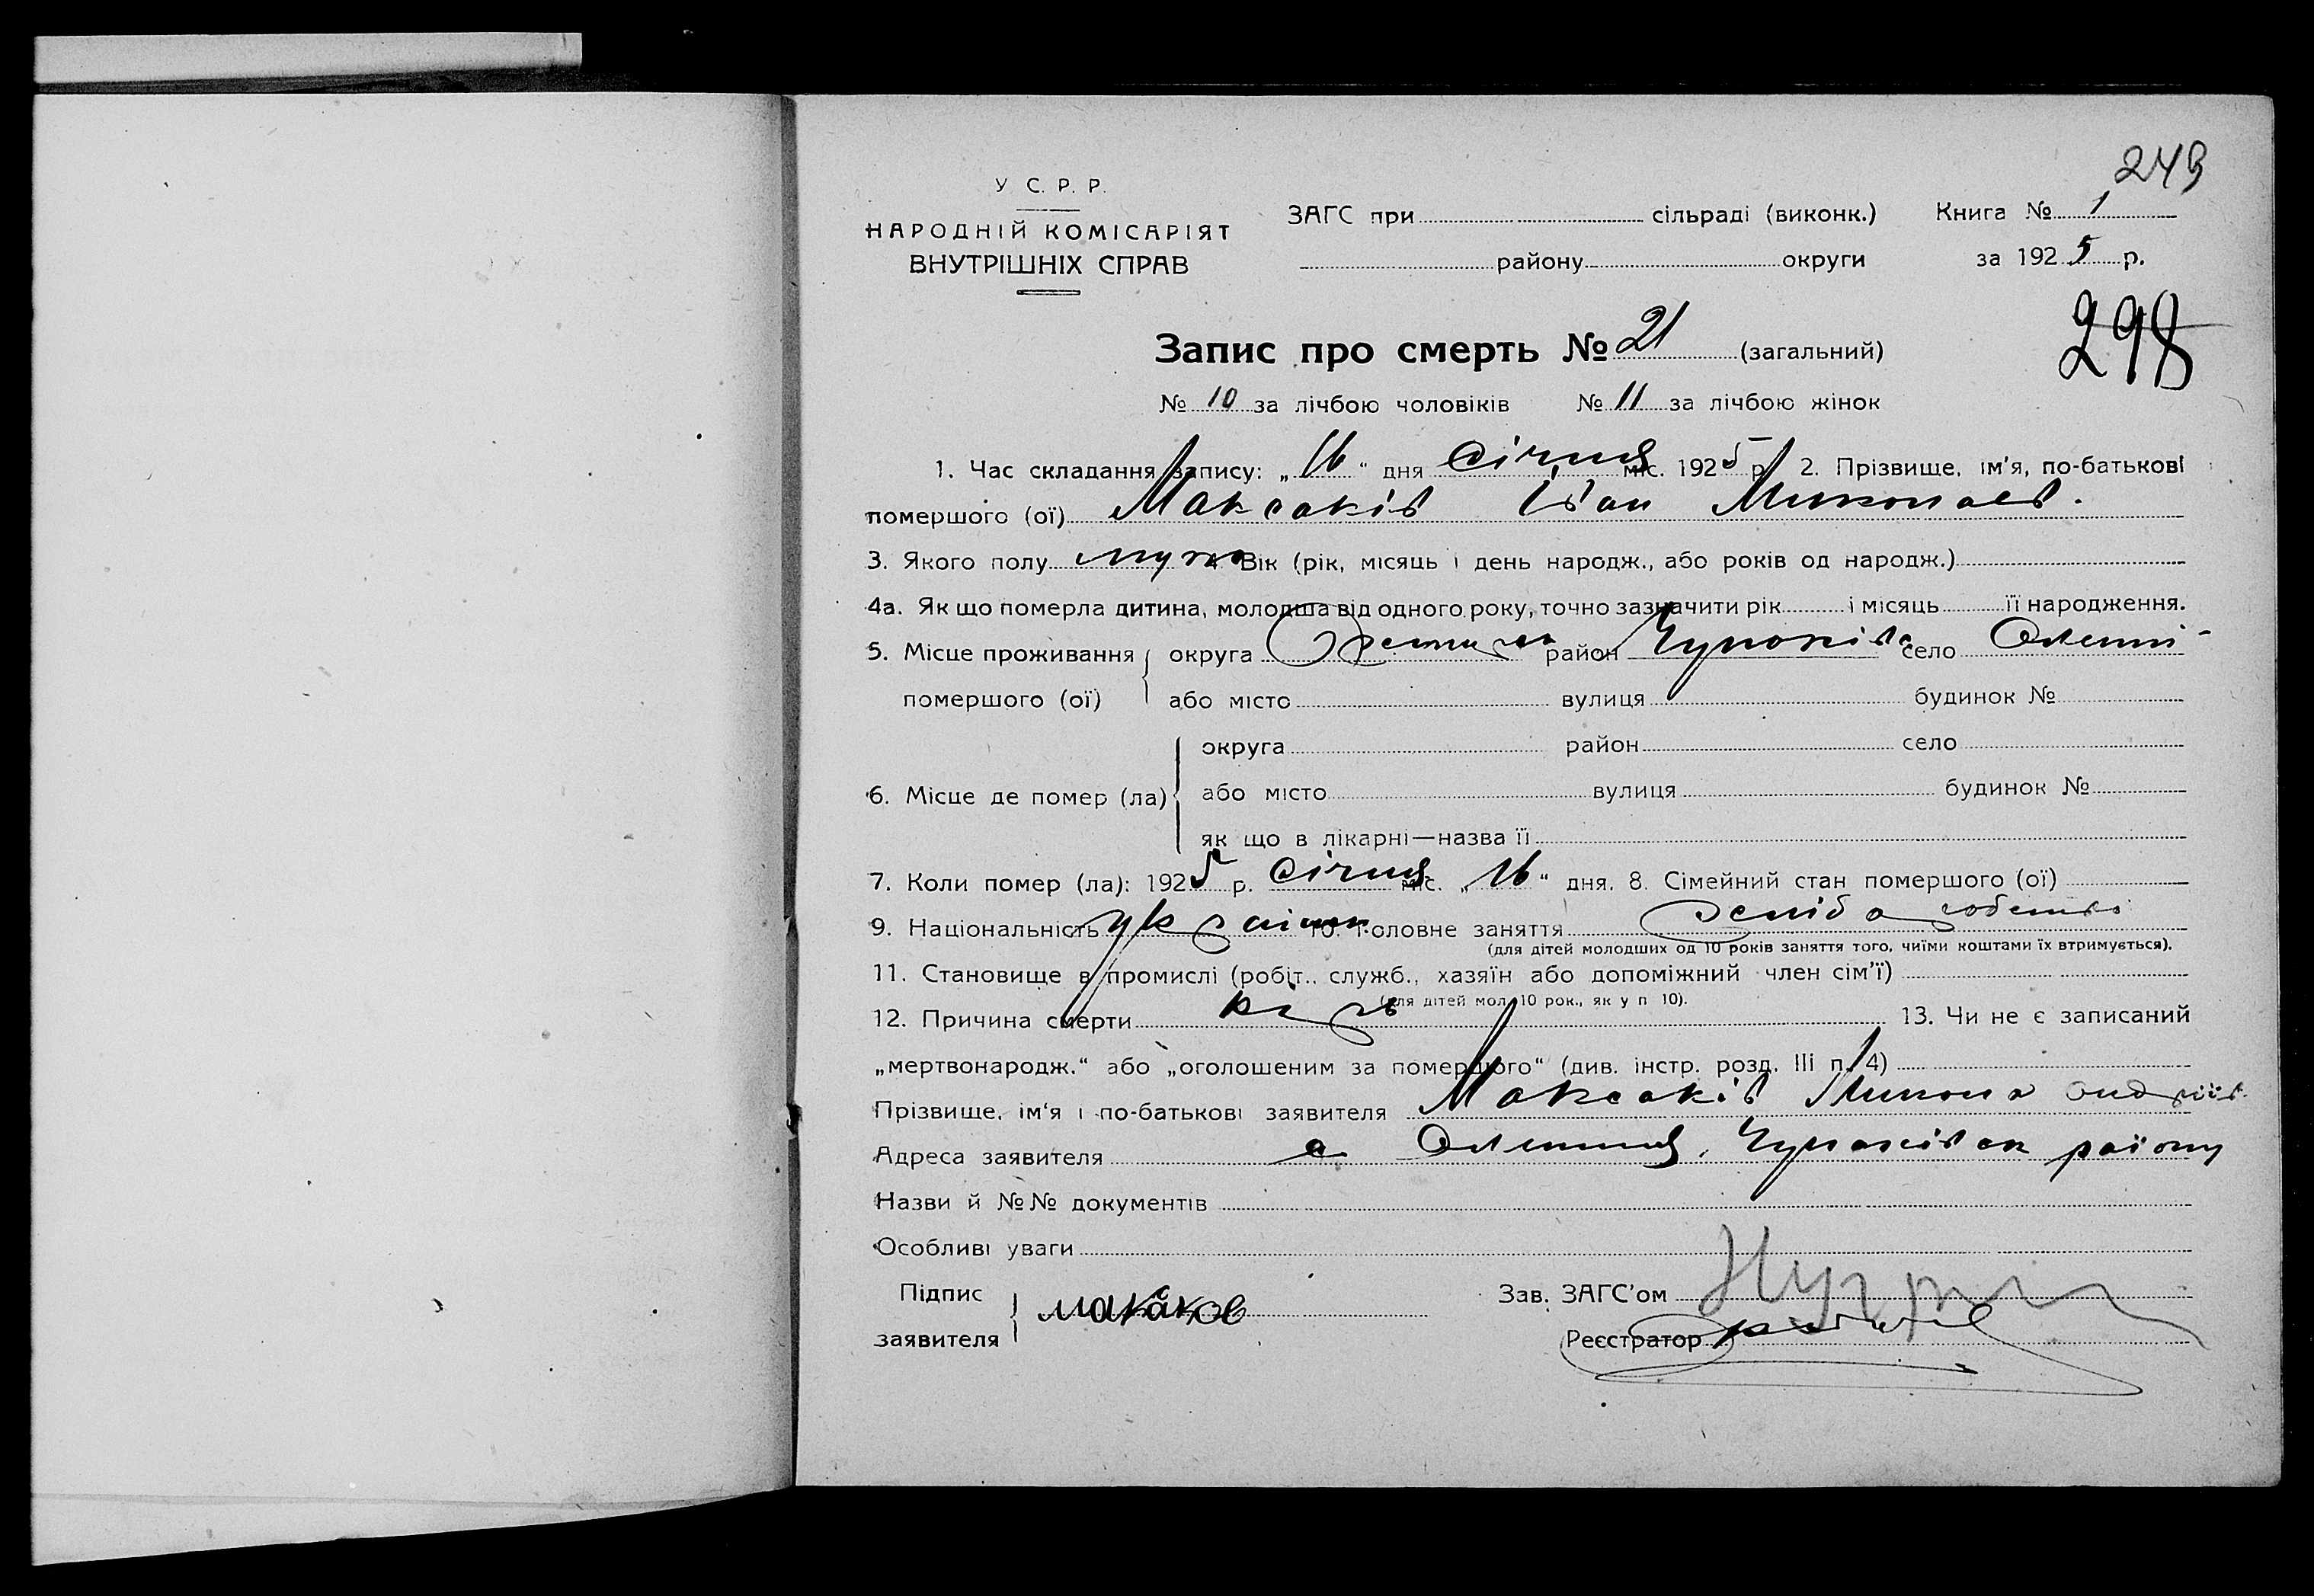 249
У С. Р. Р.
НАРОДНІЙ КОМІСАРІЯТ
ВНУТРІШНІХ СПРАВ
ЗАГС при сільраді (виконк.) Книга № 1
району округи за 1925 р.
298
Запис про смерть № 21 (загальний)
№ 10 за лічбою чоловіків № 11 за лічбою жінок
1. Час складання запису: „16“ дня січня міс. 1925 р. 2. Прізвище, ім'я, по-батькові
помершого (ої) Максаків Іван Миколаєв.
3. Якого полу муж 4. Вік (рік, місяць і день народж., або років од народж.)
4а. Як що померла дитина, молодша від одного року, точно зазначити рік і місяць її народження.
5. Місце проживання помершого (ої) округа район село
або місто вулиця будинок №
6. Місце де помер (ла) округа район село
або місто вулиця будинок №
як що в лікарні—назва її
7. Коли помер (ла): 1925 р. січня міс. „16“ дня. 8. Сімейний стан помершого (ої)
9. Національність україн. 10. Головне заняття
(для дітей молодших од 10 років заняття того, чиїми коштами їх втримується).
11. Становище в промислі (робіт., служб., хазяїн або допоміжний член сім'ї)
(для дітей мол. 10 рок., як у п 10).
12. Причина смерти кір 13. Чи не є записаний
„мертвонародж.“ або „оголошеним за померлого“ (див. інстр. розд. III п. 4)
Прізвище, ім'я і по-батькові заявителя Максаків Микола Андріїв.
Адреса заявителя с. району
Назви й №№ документів
Особливі уваги
Підпис заявителя Зав. ЗАГС'ом
Реєстратор